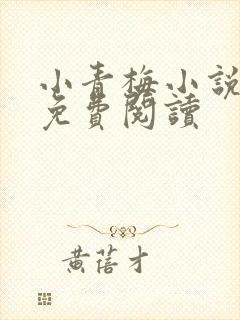 小青梅小說
免費閱讀
黃蓓才